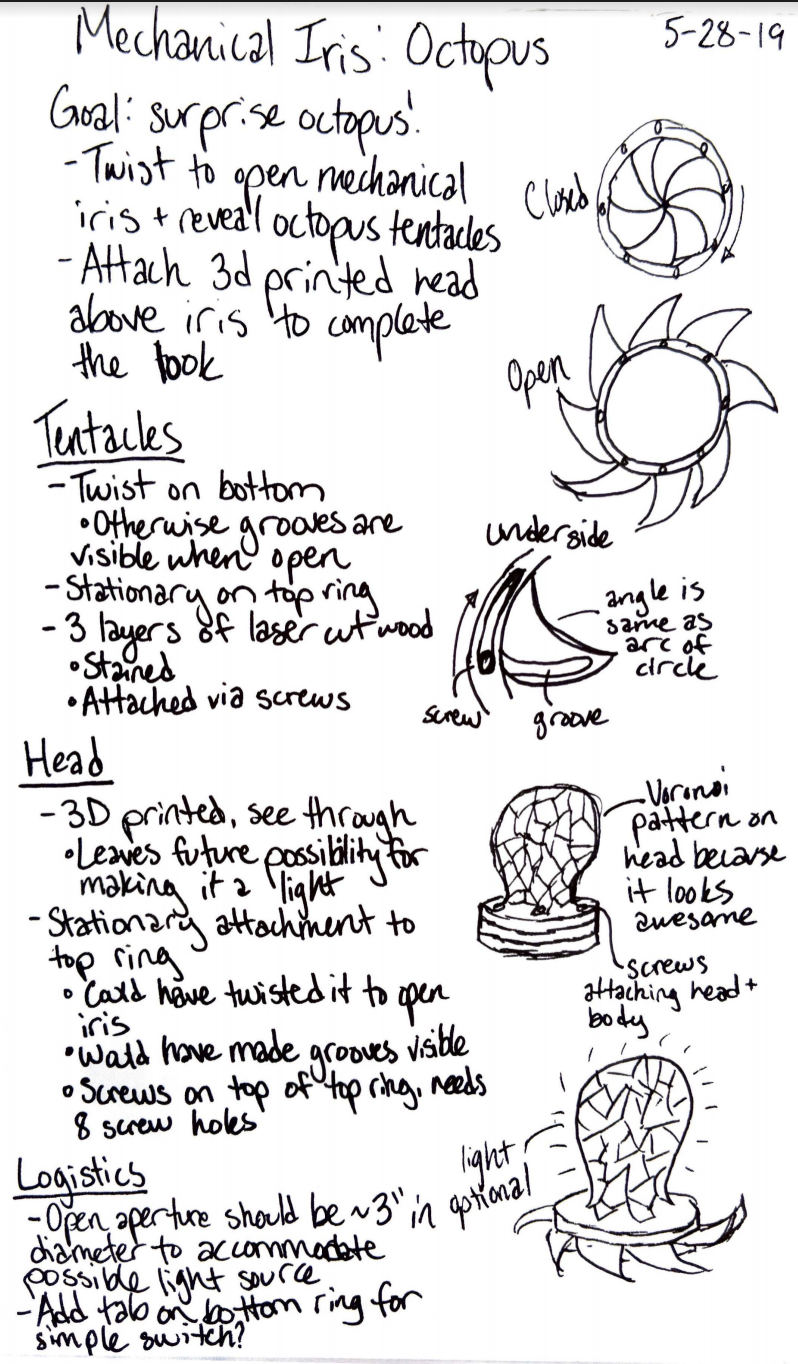 Mechanical Iris: Octopus
5-28-19
Goal: surprise octopus!
- Twist to open mechanical
iris + reveal octopus tentacles
- Attach 3d printed head
above iris to complete
the look
Closed
Open
Tentacles
- Twist on bottom
• Otherwise grooves are
visible when open
- Stationary on top ring
- 3 layers of laser cut wood
• Stained
• Attached via screws
underside
angle is
same as
arc of
circle
screw
groove
Head
- 3D printed, see through
• Leaves future possibility for
making it a light
- Stationary attachment to
top ring
• Could have twisted it to open
iris
• Would have made grooves visible
• Screws on top of top ring, needs
8 screw holes
Voronoi
pattern on
head because
it looks
awesome
screws
attaching head +
body
light
optional
Logistics
- Open aperture should be ~3" in
diameter to accommodate
possible light source
- Add tab on bottom ring for
simple switch?